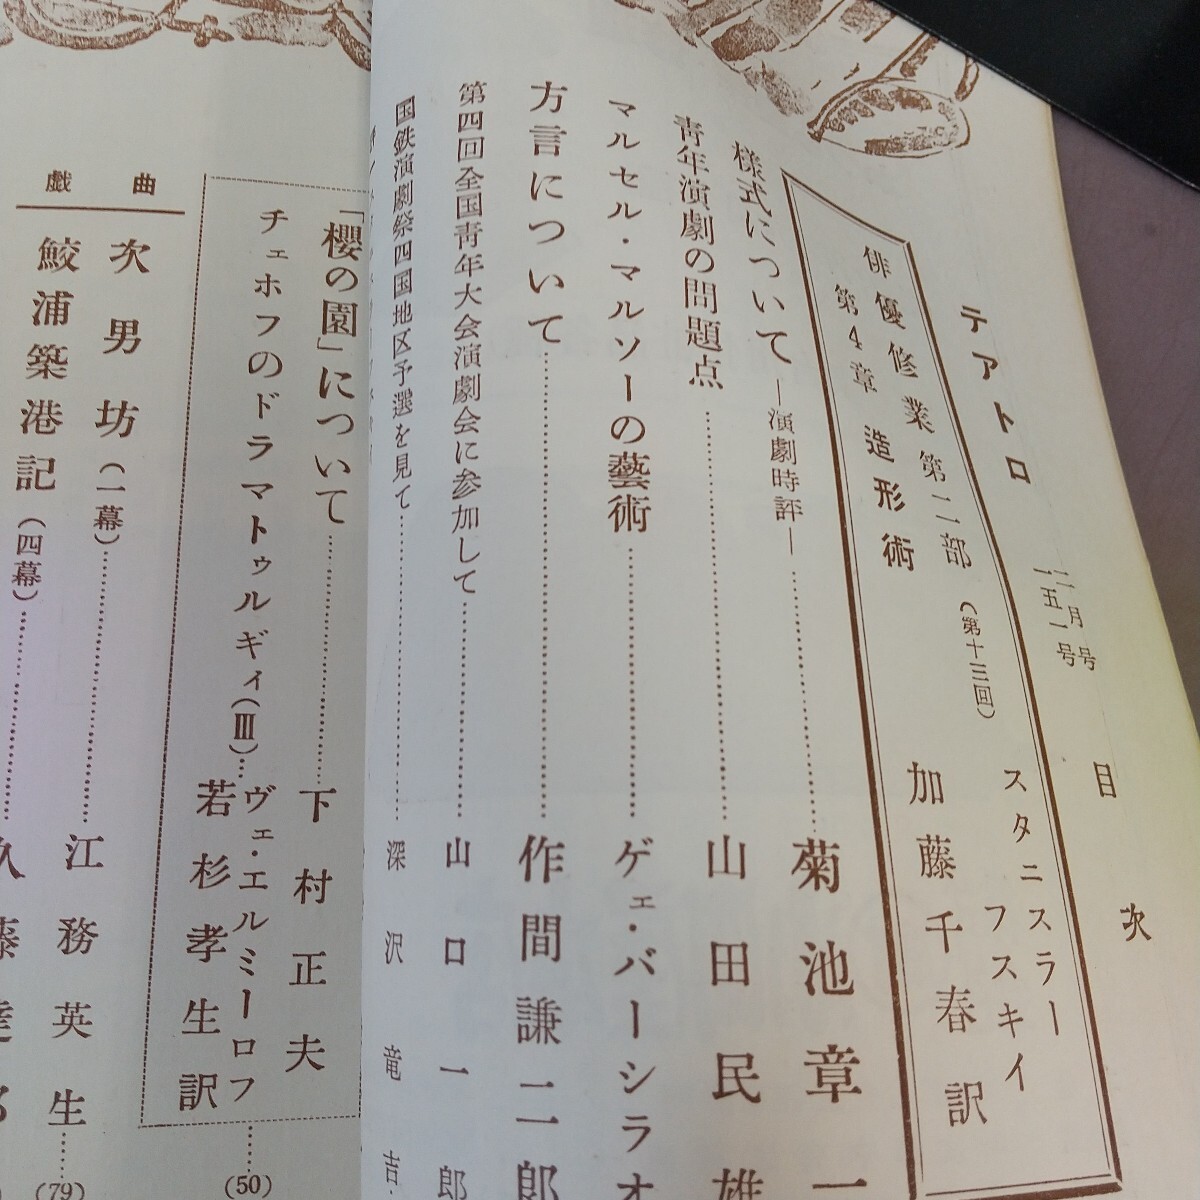 テアトロ 二月号
一五一号
目次
俳優修業第二部(第十三回)
第4章 造形術
スタニスラーフスキイ
加藤千春訳
様式について―演劇時評―……菊池章一
青年演劇の問題点……山田民雄
マルセル・マルソーの藝術……ゲェ・バーシラオ
方言について……作間謙二郎
第四回全国青年大会演劇会に参加して……山口一郎
国鉄演劇祭四国地区予選を見て……深沢竜吉
「櫻の園」について……下村正夫
チェホフのドラマトゥルギィ(Ⅲ)…ヴェ・エルミーロフ
若杉孝生訳……(50)
戯曲
次男坊(一幕)……江務英生……(79)
鮫浦築港記(四幕)……